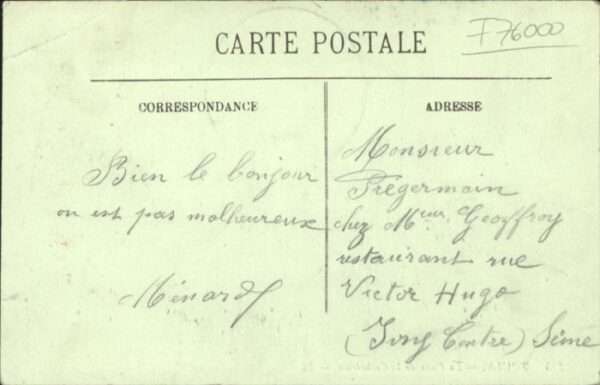 CARTE POSTALE
F76000
CORRESPONDANCE
Bien le bonjour
on est pas malheureux
Ménard
ADRESSE
Monsieur
Piegermain
chez Meur Geoffroy
restaurant rue
Victor Hugo
(Ivry Centre) Seine